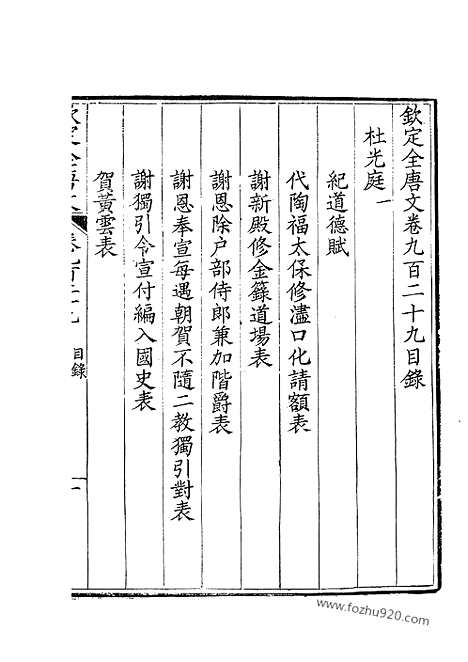 欽定全唐文卷九百二十九目錄
杜光庭一
紀道德賦
代陶福太保修濜口化請額表
謝新殿修金籙道場表
謝恩除户部侍郎兼加階爵表
謝恩奉宣每遇朝賀不隨二教獨引對表
謝獨引令宣付編入國史表
賀黃雲表
欽定全唐文 卷九百二十九 目錄 一
www.fozhu920.com